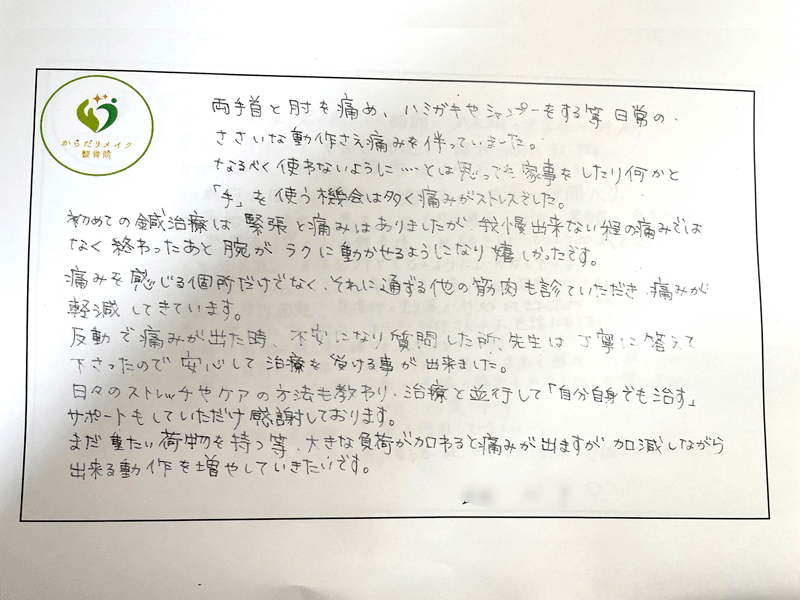 からだリメイク
整骨院
両手首と肘を痛め、ハミガキやシャンプーをする等日常の、
ささいな動作さえ痛みを伴っていました。
なるべく使わないように…とは思ってた家事をしたり何かと
「手」を使う機会は多く痛みがストレスでした。
初めての鍼治療は緊張と痛みはありましたが、我慢出来ない程の痛みでは
なく終わったあと腕がラクに動かせるようになり嬉しかったです。
痛みを感じる個所だけでなく、それに通ずる他の筋肉も診ていただき、痛みが
軽減してきています。
反動で痛みが出た時、不安になり質問した所、先生は丁寧に答えて
下さったので安心して治療を受ける事が出来ました。
日々のストレッチやケアの方法も教わり、治療と並行して「自分自身でも治す」
サポートもしていただけ感謝しております。
まだ重たい荷物を持つ等、大きな負荷が加わると痛みが出ますが加減しながら
出来る動作を増やしていきたいです。